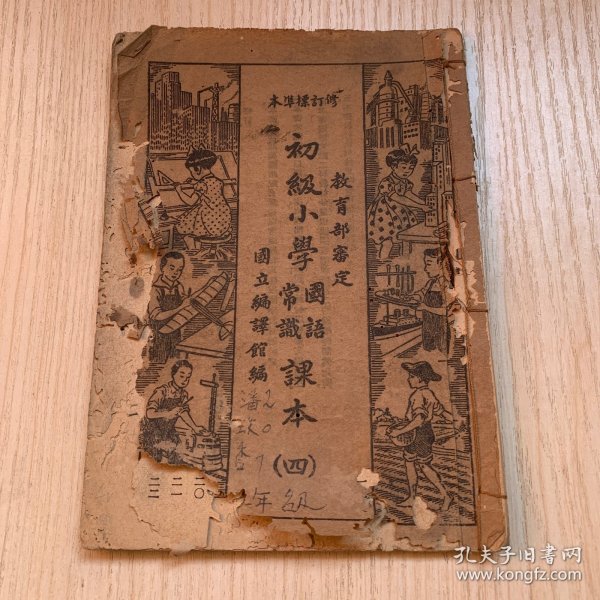 修訂標準本
教育部審定
初級小學
國語
常識
課本
(四)
國立編譯館編
年級
二〇
二一
二二
孔夫子旧书网
www.kongfz.com